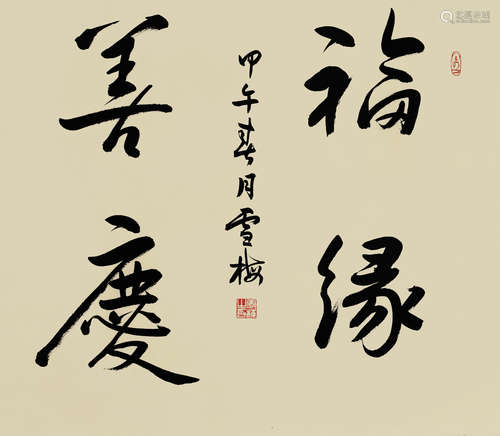 福缘
善慶
甲午春月雪梅